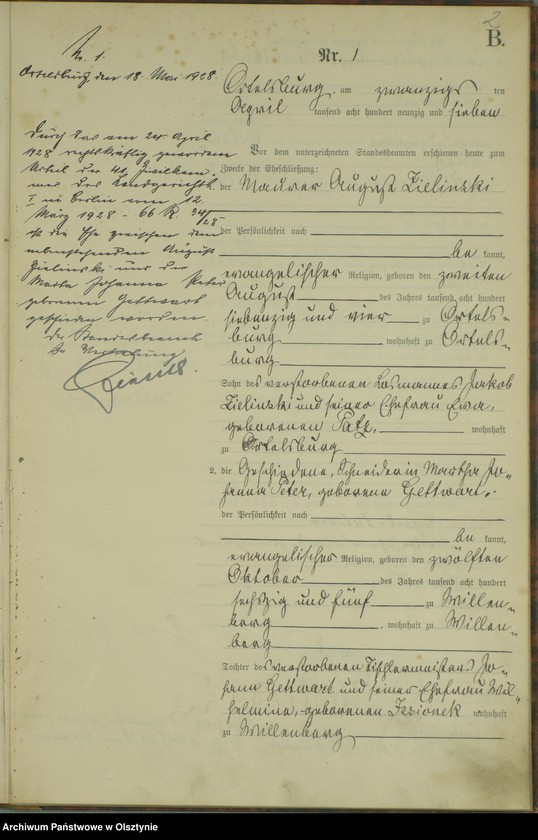 2
B.
Nr. 1
Ortelsburg, am zwanzigsten
April tausend acht hundert neunzig und sieben
Vor dem unterzeichneten Standesbeamten erschienen heute zum
Zwecke der Eheschließung:
der Maurer August Zielinski
der Persönlichkeit nach
bekannt,
evangelischer Religion, geboren den zweiten
August des Jahres tausend acht hundert
siebenzig und vier zu Ortels-
burg, wohnhaft zu Ortels-
burg
Sohn des verstorbenen Losmannes Jakob
Zielinski und seiner Ehefrau Eva,
geborenen Patz, wohnhaft
zu Ortelsburg
2. die Geschiedene, Schneiderin Martha Jo-
hanna Peter, geborene Gettwart,
der Persönlichkeit nach
bekannt,
evangelischer Religion, geboren den zwölften
Oktober des Jahres tausend acht hundert
sechszig und fünf zu Willen-
berg, wohnhaft zu Willen-
berg
Tochter des verstorbenen Tischlermeisters Jo-
hann Gettwart und seiner Ehefrau Wil-
helmine, geborenen Jezionek wohnhaft
zu Willenberg
N. 1.
Ortelsburg, den 18. Mai 1928.
Durch das am 24. April
1928 rechtskräftig gewordene
Urteil der 41. Zivilkam-
mer des Landgerichts
I in Berlin vom 12.
März 1928 - 66 R. 34/28
ist die Ehe zwischen dem
nebenstehenden August
Zielinski und der
Martha Johanna Peter
geborenen Gettwart
geschieden worden.
Der Standesbeamte
In Vertretung
Archiwum Państwowe w Olsztynie